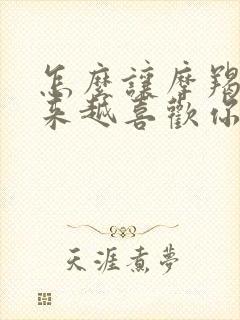 怎麼讓摩羯
來越喜歡你
天涯煮夢